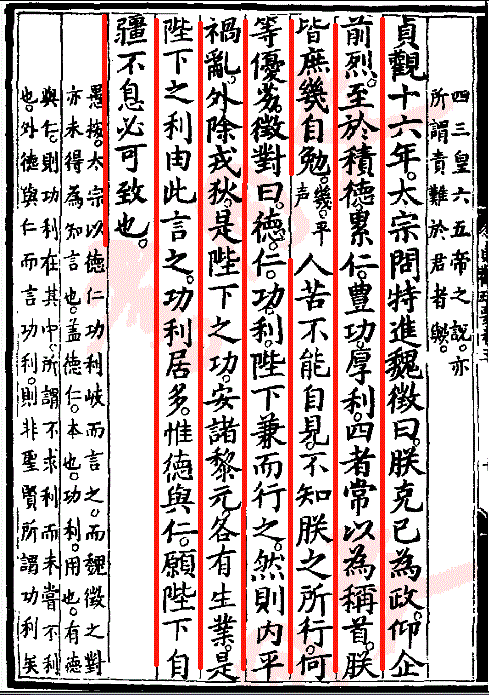 四三皇六五帝之說。亦
所謂責難於君者歟。
貞觀十六年。太宗問特進魏徵曰。朕克己為政。仰企
前烈。至於積德。累仁。豐功。厚利。四者常以為稱首。朕
皆庶幾自勉。幾。平聲人苦不能自見。不知朕之所行。何
等優劣。徵對曰。德。仁。功。利。陛下兼而行之。然則內平
禍亂。外除戎狄。是陛下之功。安諸黎元。各有生業。是
陛下之利由此言之。功利居多。惟德與仁。願陛下自
疆不息必可致也。
愚按。太宗以德仁功利岐而言之。而魏徵之對
亦未得為知言也。蓋德仁。本也。功利。用也。有德
與仁。則功利在其中。所謂不求利而未嘗不利
也。外德與仁而言功利。則非聖賢所謂功利矣